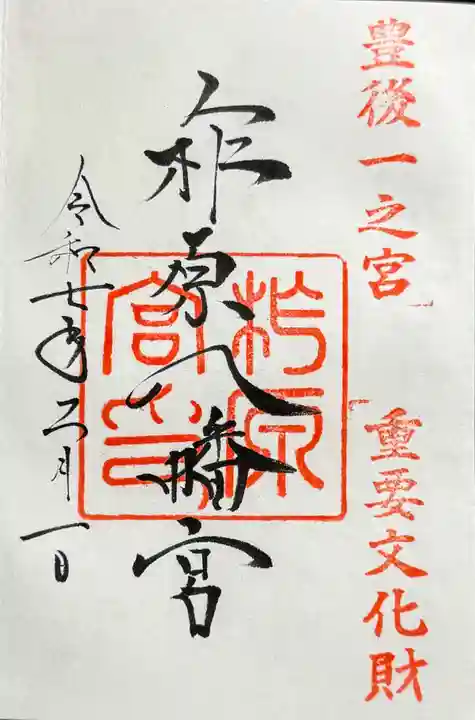 豊後一之宮
重要文化財
柞原八幡宮
柞原
宮印
令和七年 月一日